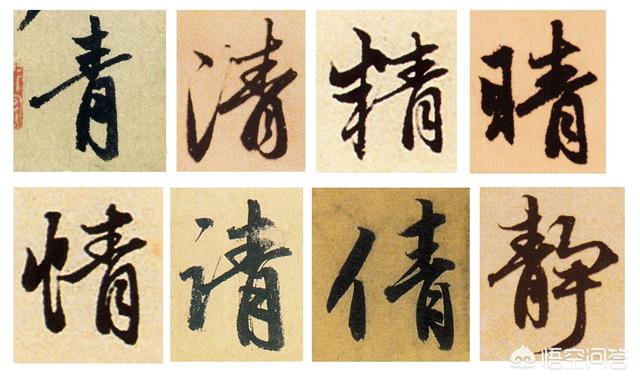 青 清 精 晴
情 请 倩 静
悟空问答